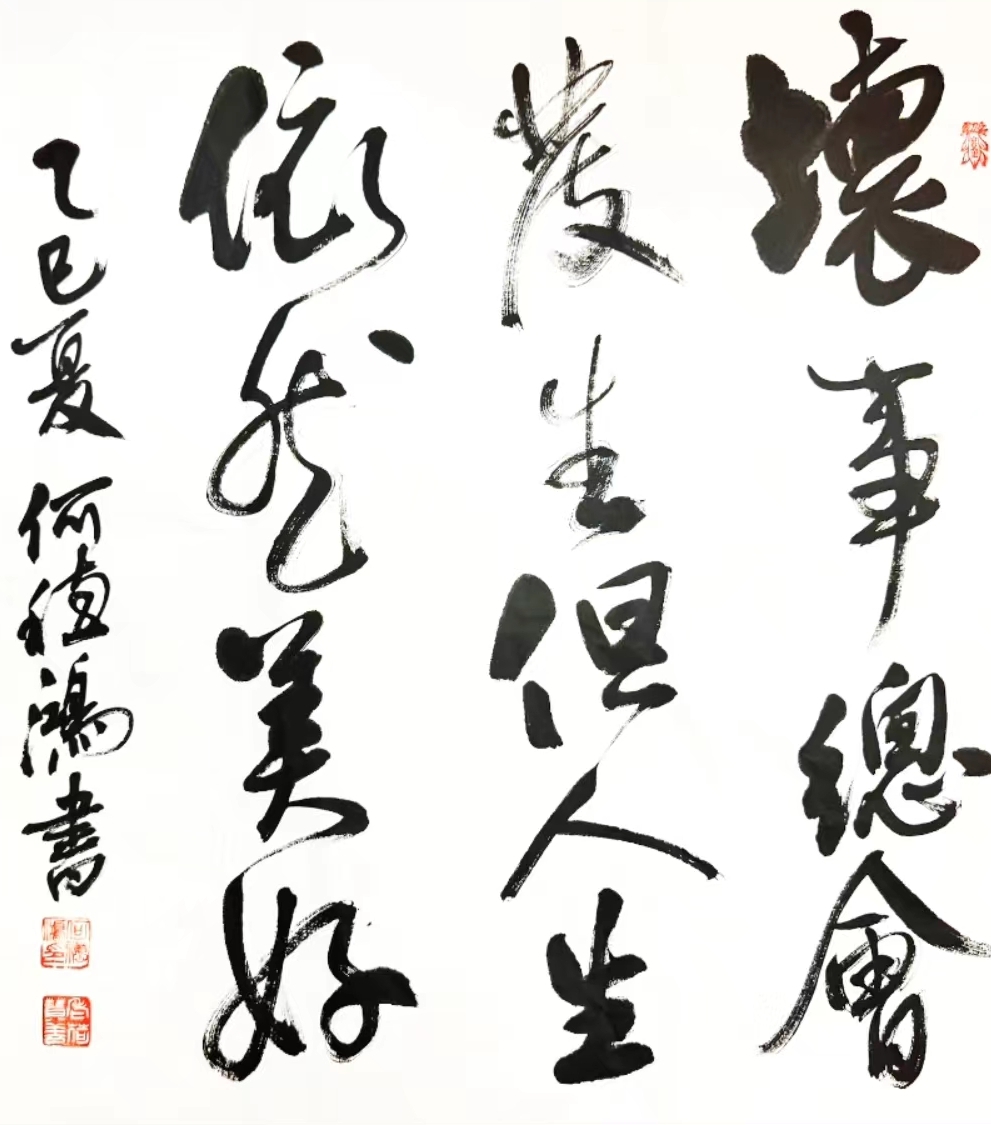 壞事總會
發生但人生
依然美好
乙巳夏 何德鴻書